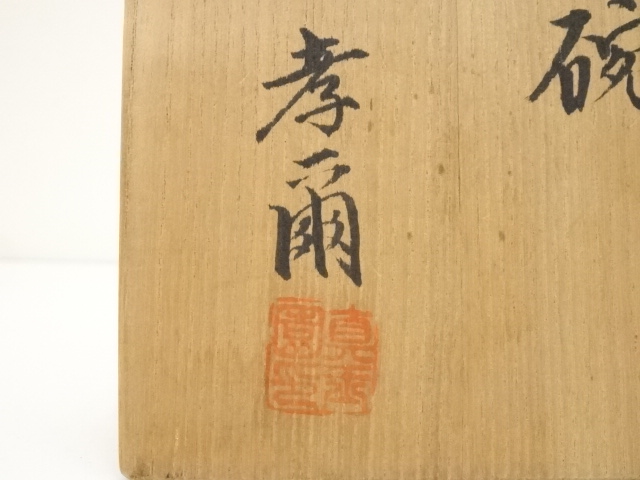 碗
孝爾